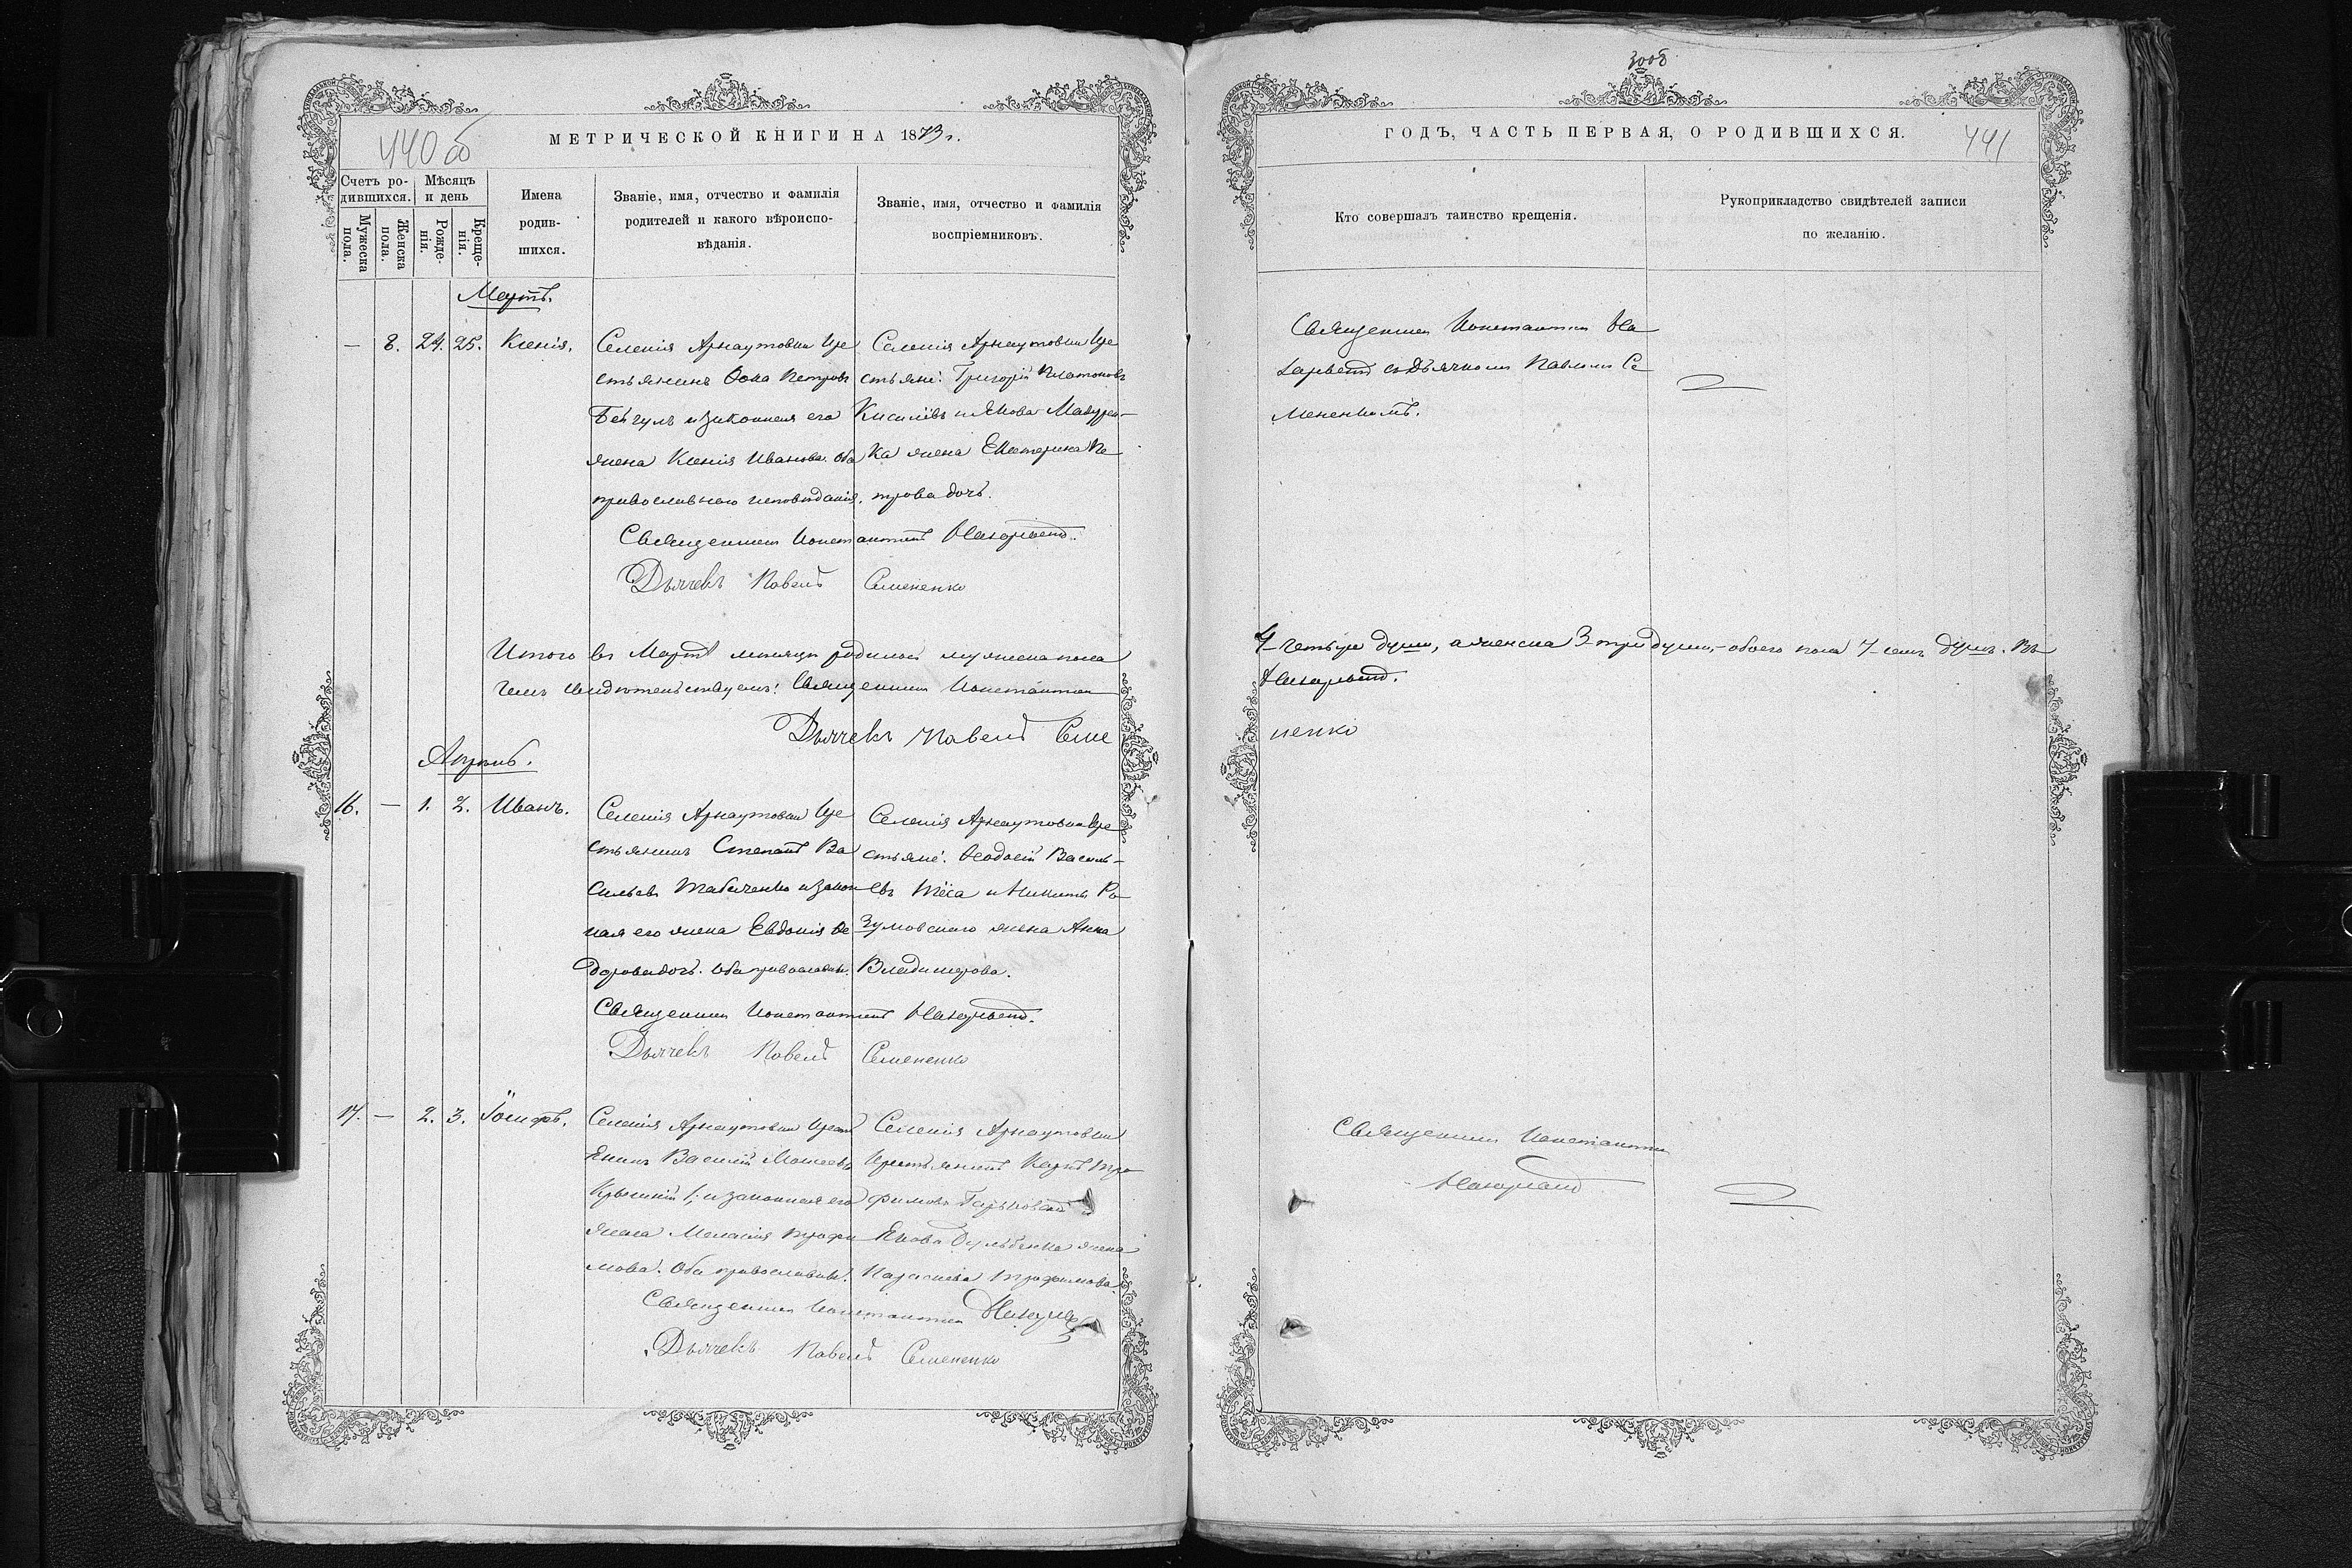 440 об
МЕТРИЧЕСКОЙ КНИГИ НА 1873 г.
Счетъ ро-
дившихся.
Мѣсяцъ
и день
Мужеска
пола.
Женска
пола.
Рожде-
нія.
Креще-
нія.
Имена
родив-
шихся.
Званіе, имя, отчество и фамилія
родителей и какого вѣроиспо-
вѣданія.
Званіе, имя, отчество и фамилія
воспріемниковъ.
Мартъ.
— 8. 24. 25. Ксенія.
Селенія Арнаутовки Кре
стьянинъ Ѳома Петровъ
и законная его
жена Ксенія Иванова. Оба
православнаго исповѣданія.
Селенія Арнаутовки Кре
стьяне: Григорій Платоновъ
Киселевъ и Якова Мазурен-
ка жена Екатерина Пе
трова дочь.
Священникъ Константинъ
Дьячекъ Павелъ Семененко
Итого въ Мартѣ мѣсяцѣ родилось мужеска пола
чемъ свидѣтельствуемъ: Священникъ Константинъ
Дьячекъ Павелъ Семе
Апрѣль.
16. — 1. 2. Иванъ.
Селенія Арнаутовки Кре
стьянинъ Степанъ Ва
сильевъ Ткаченко и закон
ная его жена Евдокія Ѳе
дорова дочь. Оба православн.
Селенія Арнаутовки Кре
стьяне: Ѳеодосій Василь-
евъ и Никиты Ра
зумовскаго жена Анна
Владимирова.
Священникъ Константинъ
Дьячекъ Павелъ Семененко
17. — 2. 3. Іосифъ.
Селенія Арнаутовки Крест
янинъ Василій Моисеевъ
и законная его
жена Меланія Трофи
мова. Оба православн.
Селенія Арнаутовки
Крестьянинъ Карпъ Тро
фимовъ
Якова жена
Параскева Трофимова
Священникъ Константинъ
Дьячекъ Павелъ Семененко
300б
ГОДЪ, ЧАСТЬ ПЕРВАЯ, О РОДИВШИХСЯ.
441
Кто совершалъ таинство крещенія.
Рукоприкладство свидѣтелей записи
по желанію.
Священникъ Константинъ
съ дьячкомъ Павломъ Се
мененкомъ.
4 четыре души, а женска 3 три души, — обоего пола 7 семь душъ. Въ
ненко
Священникъ Константинъ